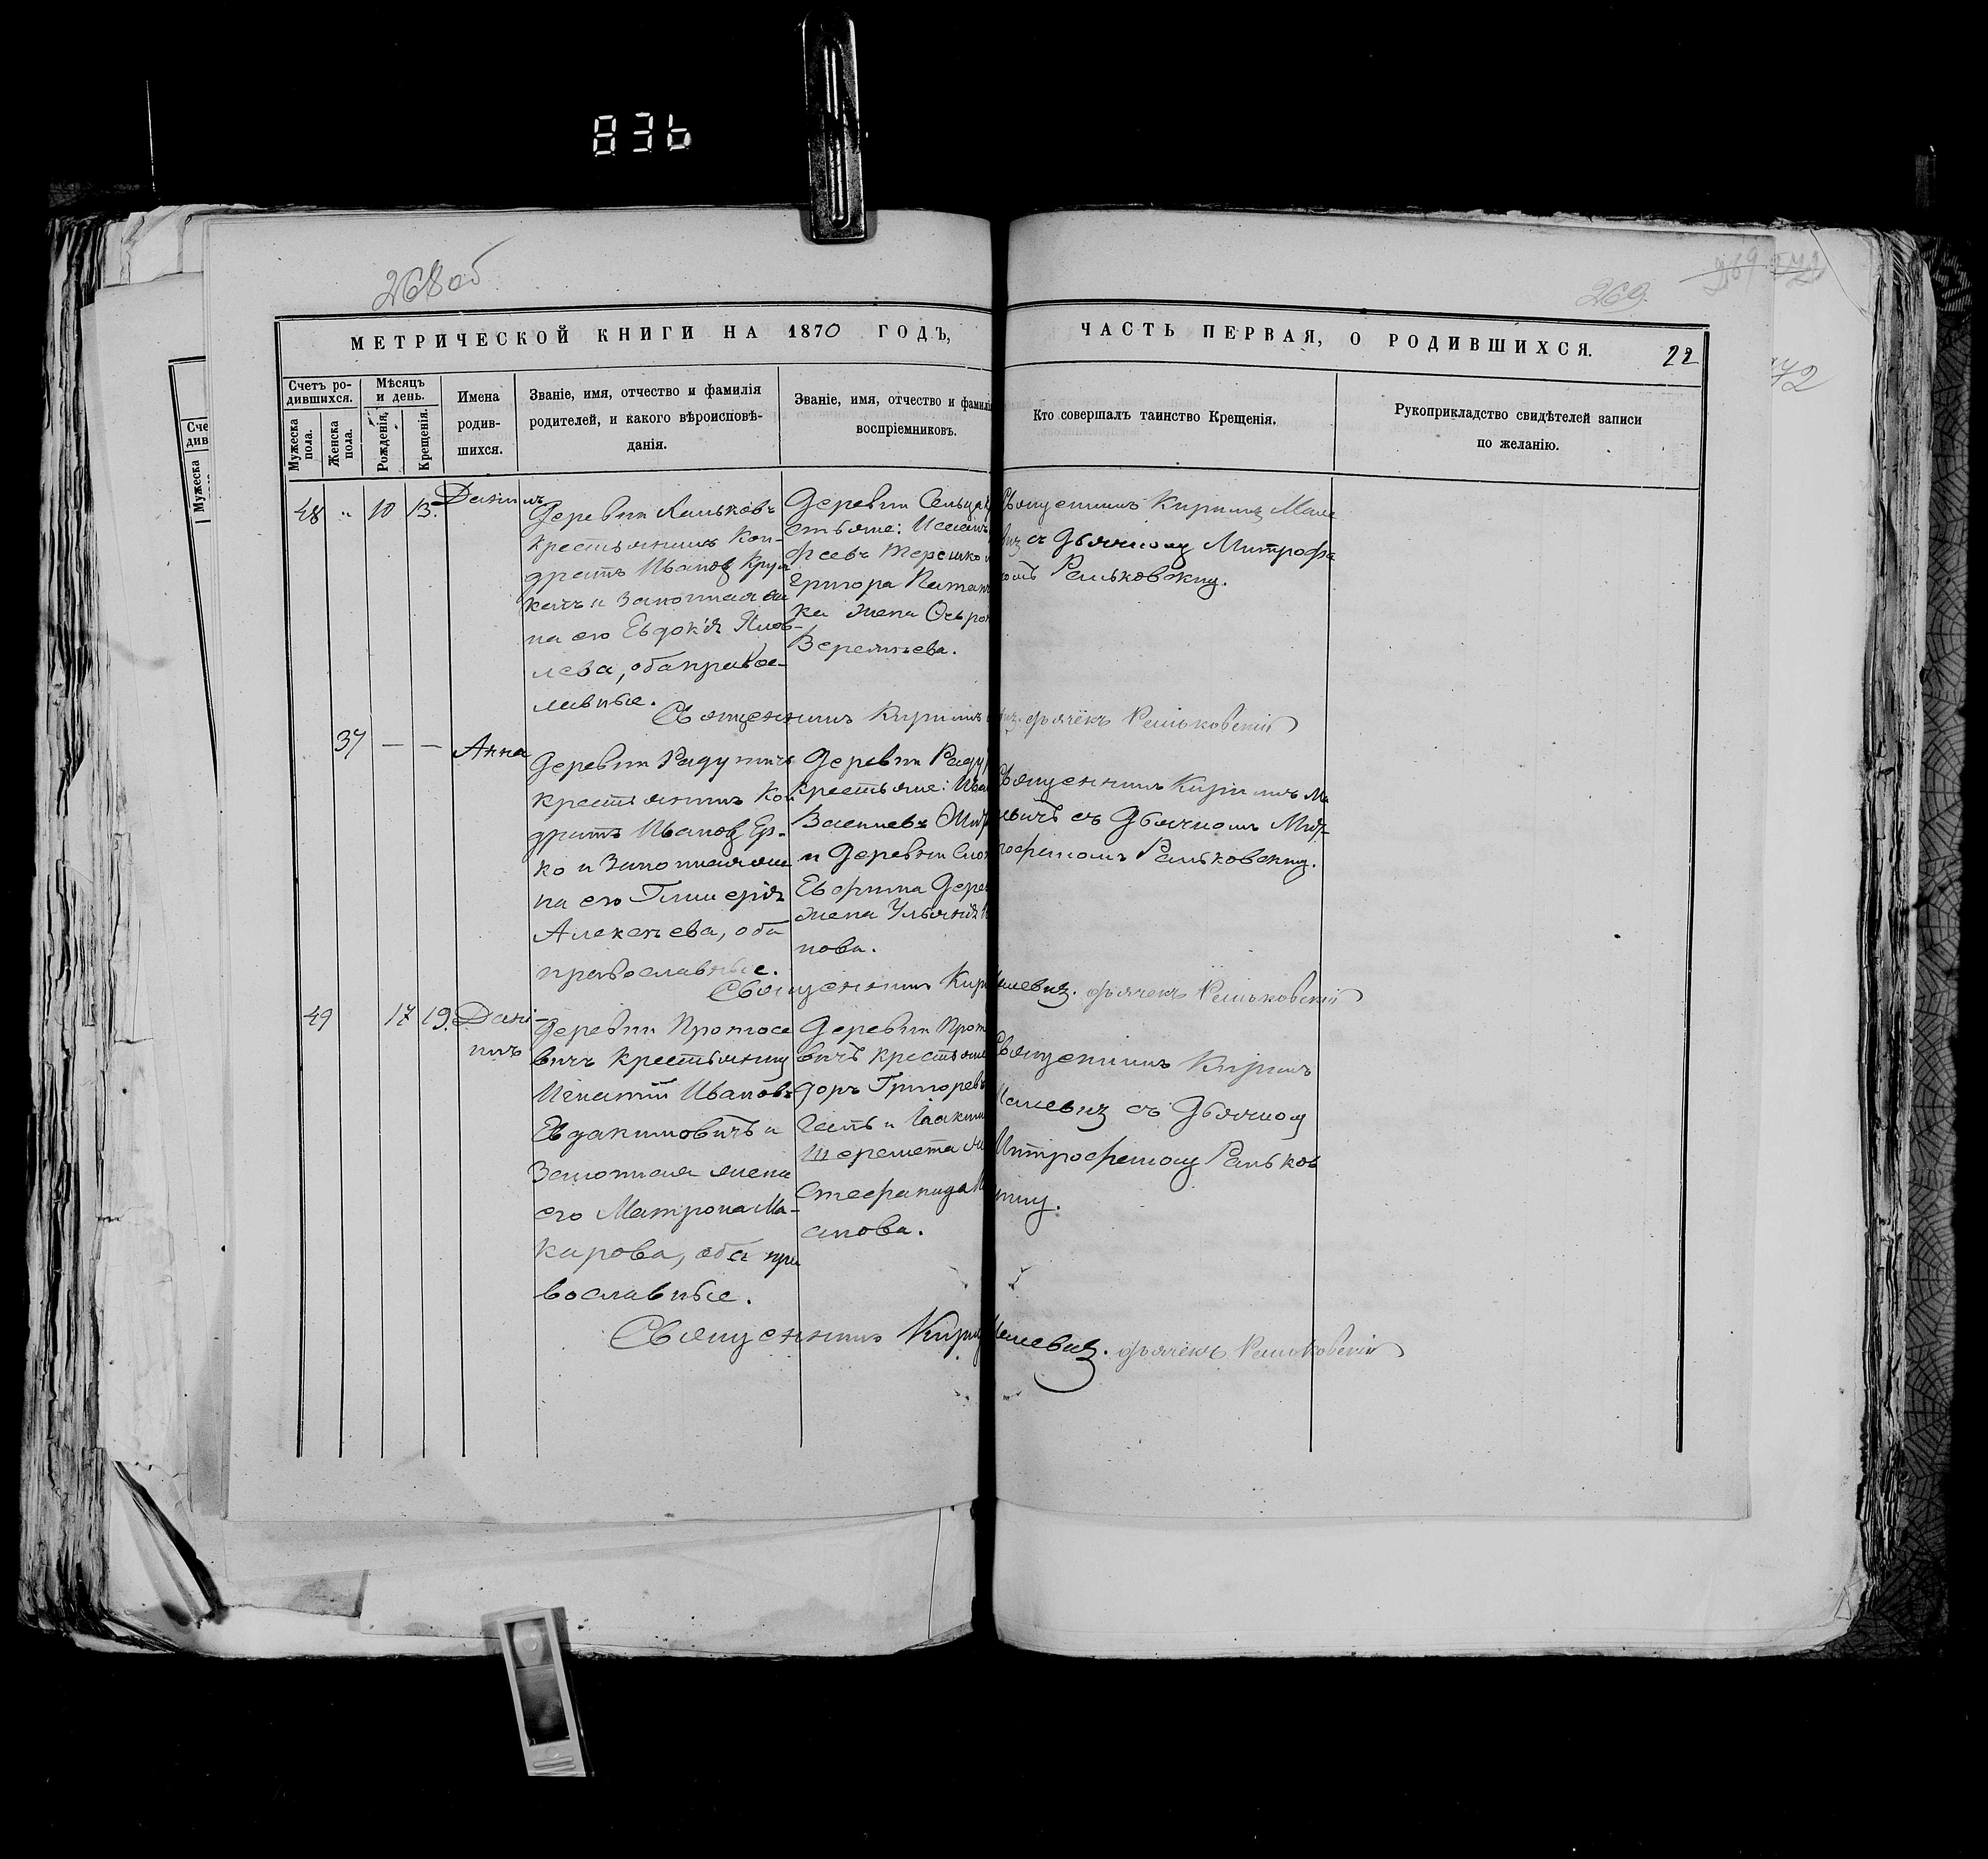 836
268 об
269.
269
172
МЕТРИЧЕСКОЙ КНИГИ НА 1870 ГОДЪ,
ЧАСТЬ ПЕРВАЯ, О РОДИВШИХСЯ.
22
Счетъ ро-
дившихся.
Мужеска
пола.
Женска
пола.
Мѣсяцъ
и день.
Рожденія.
Крещенія.
Имена
родив-
шихся.
Званіе, имя, отчество и фамилія
родителей, и какого вѣроисповѣ-
данія.
Званіе, имя, отчество и фамилія
воспріемниковъ.
Кто совершалъ таинство Крещенія.
Рукоприкладство свидѣтелей записи
по желанію.
48 " 10 13.
Данилъ
Деревни
крестьянинъ Кон-
дратъ Ивановъ
и законная же
на его Евдокія Яков-
лева, обаправос-
лавные.
Деревни
Григора
ка жена
Верентьева.
Священникъ Кирилъ Мале
съ Дьячкомъ Митрофа
номъ Раньковскимъ.
Священникъ Кирилъ дьячёкъ Раньковскій
37 — —
Анна
Деревни Радутичъ
крестьянинъ Кон
дратъ Ивановъ Ер-
ко и Законная же
на его Гликерія
Алексѣева, оба
православные.
Деревни Раду
крестьяне: Ива
Василевъ
и Деревни
Евфима
жена Ульянія
нова.
Священникъ Кирилъ Ма
левичъ съ Дьячкомъ Мит-
рофаномъ Раньковскимъ.
Священникъ Кир левичъ. дьячекъ Раньковскій
49 17 19.
Дані-
илъ
Деревни Протасе
вичъ крестьянинъ
Игнатій Ивановъ
Евдакимовичъ и
Законная жена
его Матрона Ма-
карова, оба пра
вославные.
Деревни Прот
вичъ крестьяне
доръ Григоревъ
и Іоаким
Шеремета
Стефанида
анова.
Священникъ Кирилъ
Малевичъ съ Дьячкомъ
Митрофаномъ Раньков
скимъ.
Священникъ Кирилъ Малевичъ. дьячёкъ Раньковскій